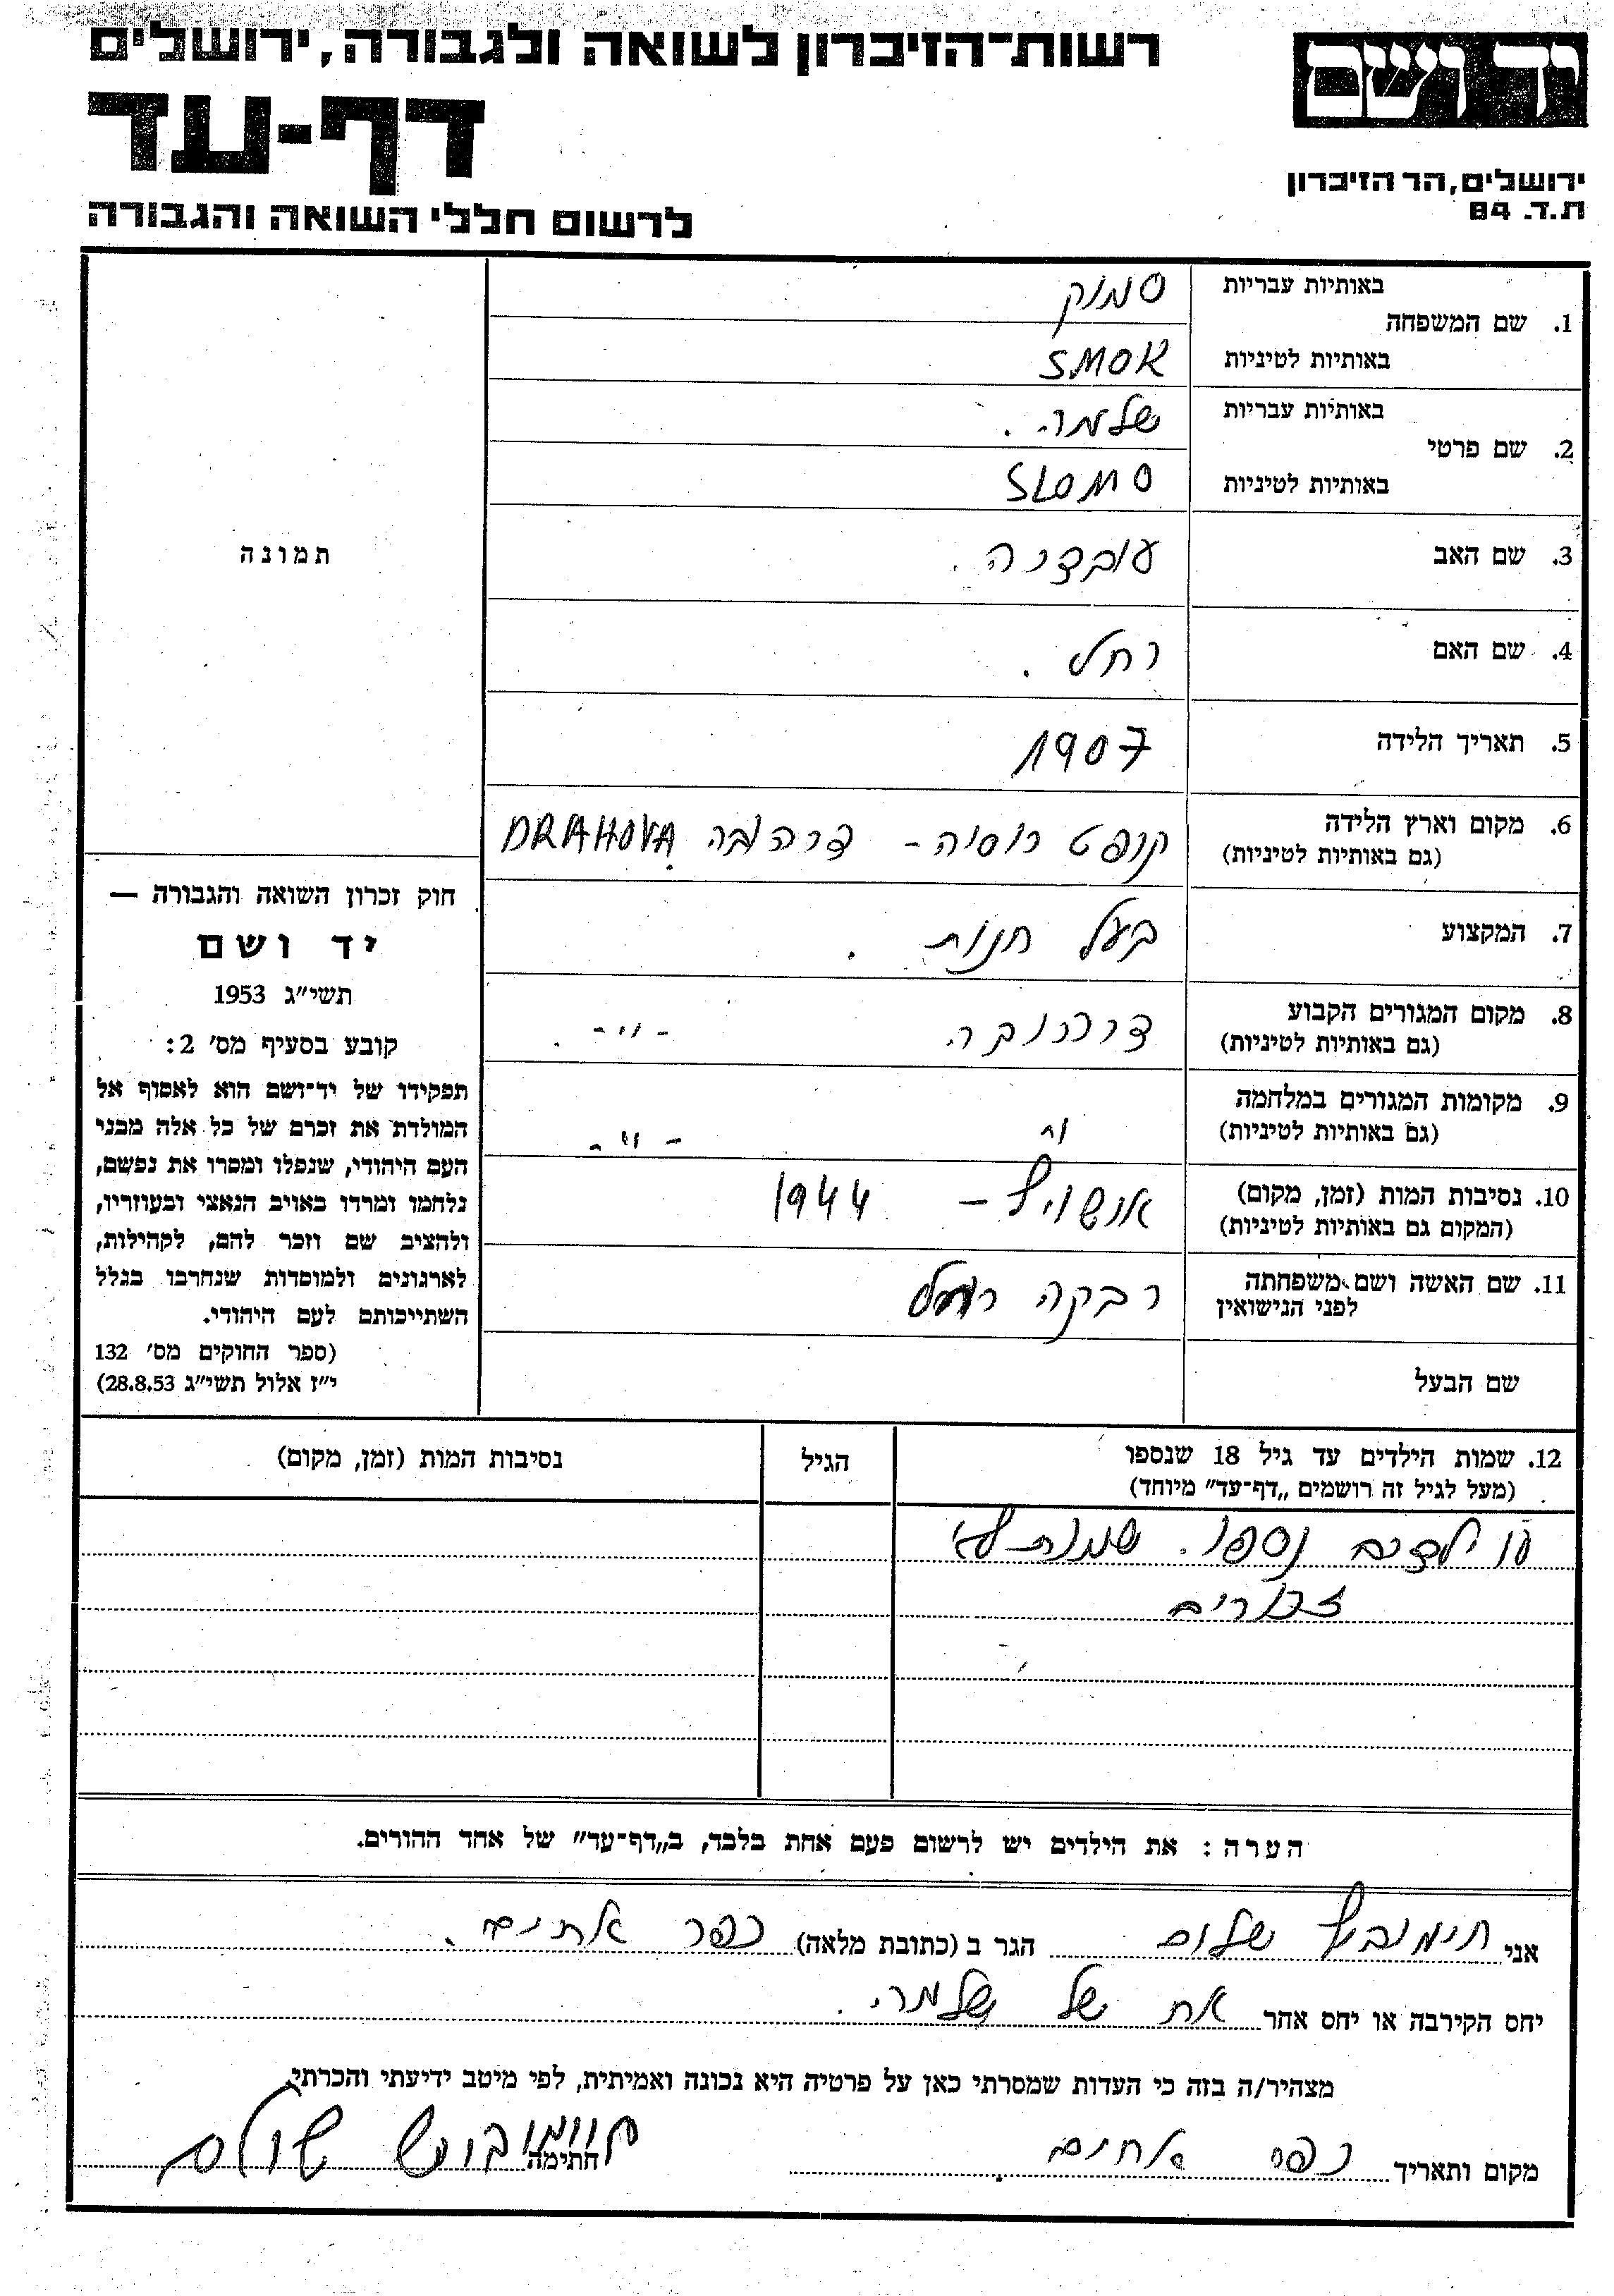 רשות־הזיכרון לשואה ולגבורה, ירושלים
יד ושם
דף-עד
ירושלים, הר הזיכרון
ת.ד. 84
לרשום חללי השואה והגבורה
1. שם המשפחה
באותיות עבריות סמוק
באותיות לטיניות SMOK
2. שם פרטי
באותיות עבריות שלמה.
באותיות לטיניות SLOMO
3. שם האב עובדיה.
4. שם האם רחל.
5. תאריך הלידה 1907
6. מקום וארץ הלידה
(גם באותיות לטיניות) קרפט רוסיה - דרהובה DRAHOVA
7. המקצוע בעל חנות.
8. מקום המגורים הקבוע
(גם באותיות לטיניות) דרהובה. -״-.
9. מקומות המגורים במלחמה
(גם באותיות לטיניות) -״-
10. נסיבות המות (זמן, מקום)
(המקום גם באותיות לטיניות) אושויץ - 1944
11. שם האשה ושם משפחתה
לפני הנישואין רבקה
שם הבעל
תמונה
חוק זכרון השואה והגבורה —
יד ושם
תשי״ג 1953
קובע בסעיף מס׳ 2:
תפקידו של יד־ושם הוא לאסוף אל
המולדת את זכרם של כל אלה מבני
העם היהודי, שנפלו ומסרו את נפשם,
נלחמו ומרדו באויב הנאצי ובעוזריו,
ולהציב שם וזכר להם, לקהילות,
לארגונים ולמוסדות שנחרבו בגלל
השתייכותם לעם היהודי.
(ספר החוקים מס׳ 132
י״ז אלול תשי״ג 28.8.53)
12. שמות הילדים עד גיל 18 שנספו
(מעל לגיל זה רושמים „דף־עד״ מיוחד)
הגיל
נסיבות המות (זמן, מקום)
ילדים נספו. שמות לא
זכורים
הערה: את הילדים יש לרשום פעם אחת בלבד, ב„דף־עד״ של אחד ההורים.
אני חיימוביץ שלום הגר ב (כתובת מלאה) כפר אחים.
יחס הקירבה או יחס אחר אח של שלמה.
מצהיר/ה בזה כי העדות שמסרתי כאן על פרטיה היא נכונה ואמיתית, לפי מיטב ידיעתי והכרתי.
מקום ותאריך כפר אחים. חתימה שולם